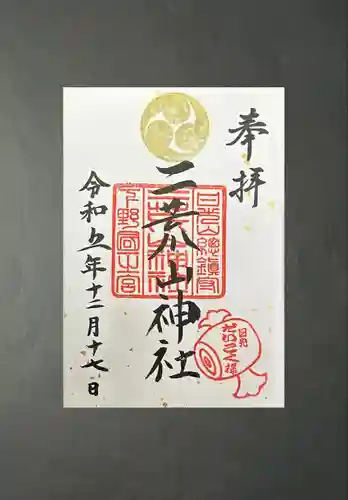 奉拝
日光山總鎮守
二荒山神社
下野國一宮
日光
だいこく様
令和五年十二月十七日